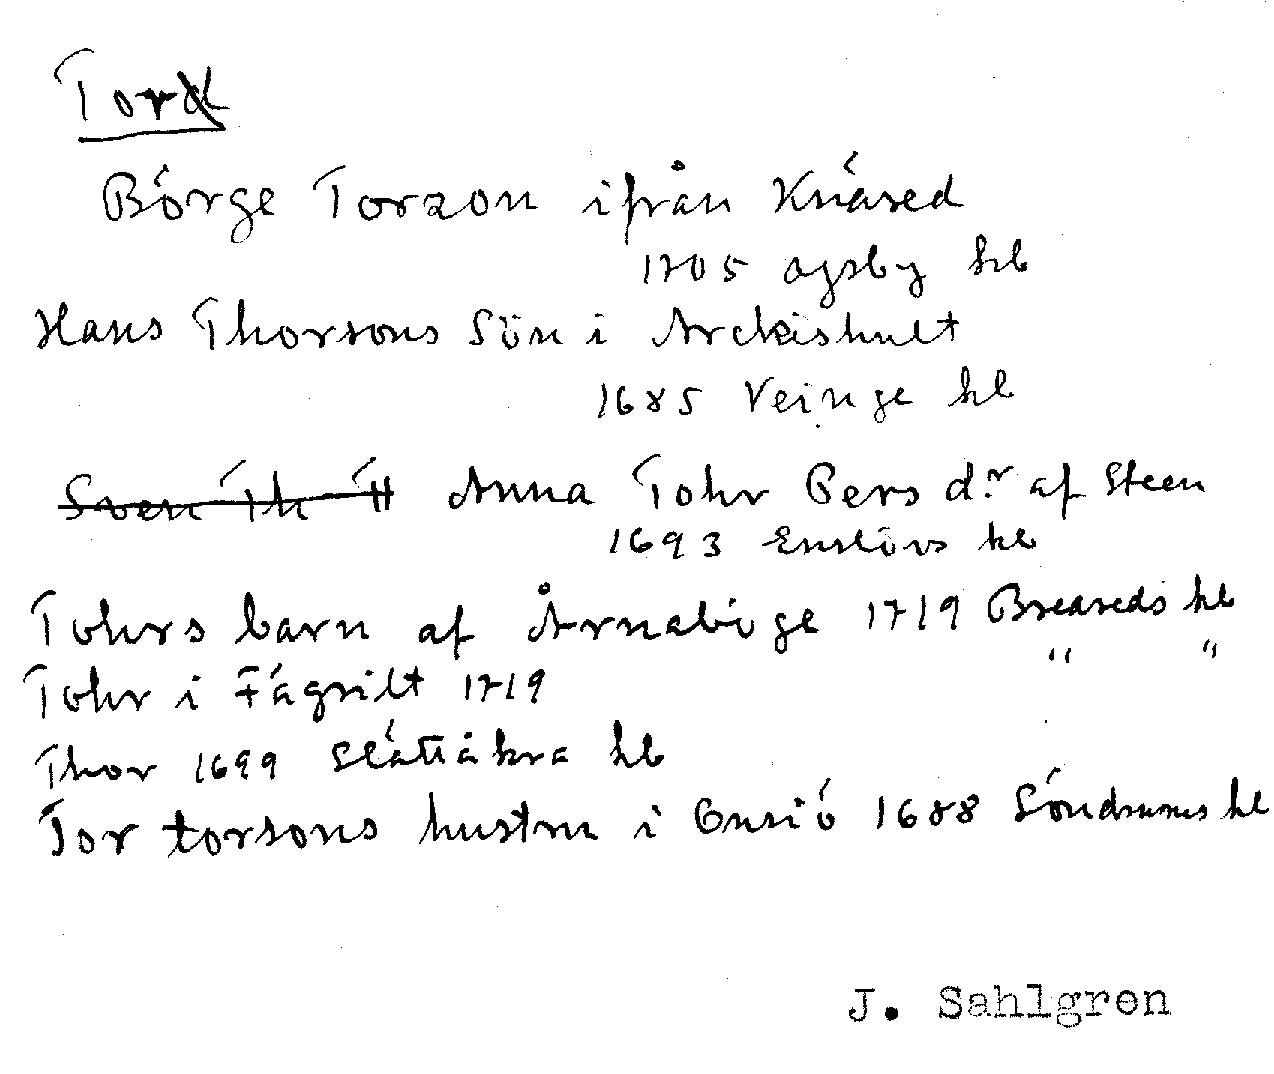 Tord
Börge Torzon ifrån Knäred
1705 Ysby kb
Hans Thorsons Sön i Arckishult
1685 Veinge kb
Sven Th Anna Tohr Pers d.r af Steen
1693 Enslövs kb
Tohrs barn af Årnabige 1719 Breareds kb
Tohr i Fägrilt 1719 " "
Thor 1699 Slättåkra kb
Tor torsons hustru i 1688 Söndrums kb
J. Sahlgren